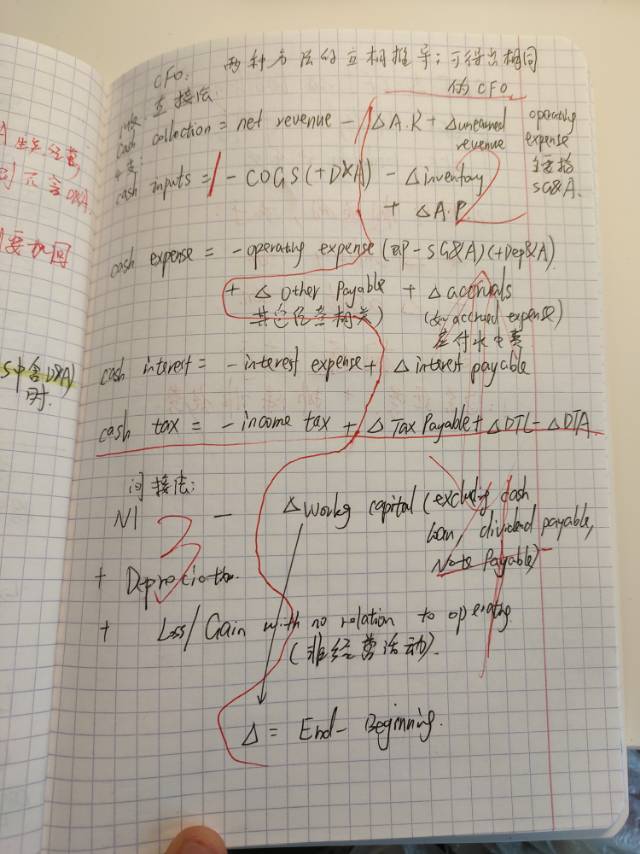 CFO: 两种方法的互相推导: 可得出相同
的CFO
直接法:
cash collection = net revenue - ΔA.R + Δunearned revenue
operating expense 包括 SG&A.
cash inputs = - COGS (+D&A) - Δinventory
+ ΔA.P
2
cash expense = - operating expense (如 - SG&A) (+Dep&A)
+ Δ Other Payable + Δ accruals
其它经营相关) (如 accrued expense)
应付水电费
cash interest = - interest expense + Δ interest payable
cash tax = - income tax + Δ Tax Payable + ΔDTL - ΔDTA.
间接法:
NI - Δ Workg capital (excluding cash
loan, dividend payable,
Note Payable)
3
+ Depreciation.
+ Loss/Gain with no relation to operating
(非经营活动).
Δ = End - Beginning.
不含D&A
S中含D&A)
时.